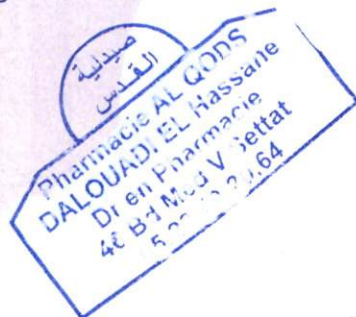 صيدلية
القدس
Pharmacie AL QODS
DALOUADI EL Hassane
Dr en Pharmacie
Bd Med V Settat
64